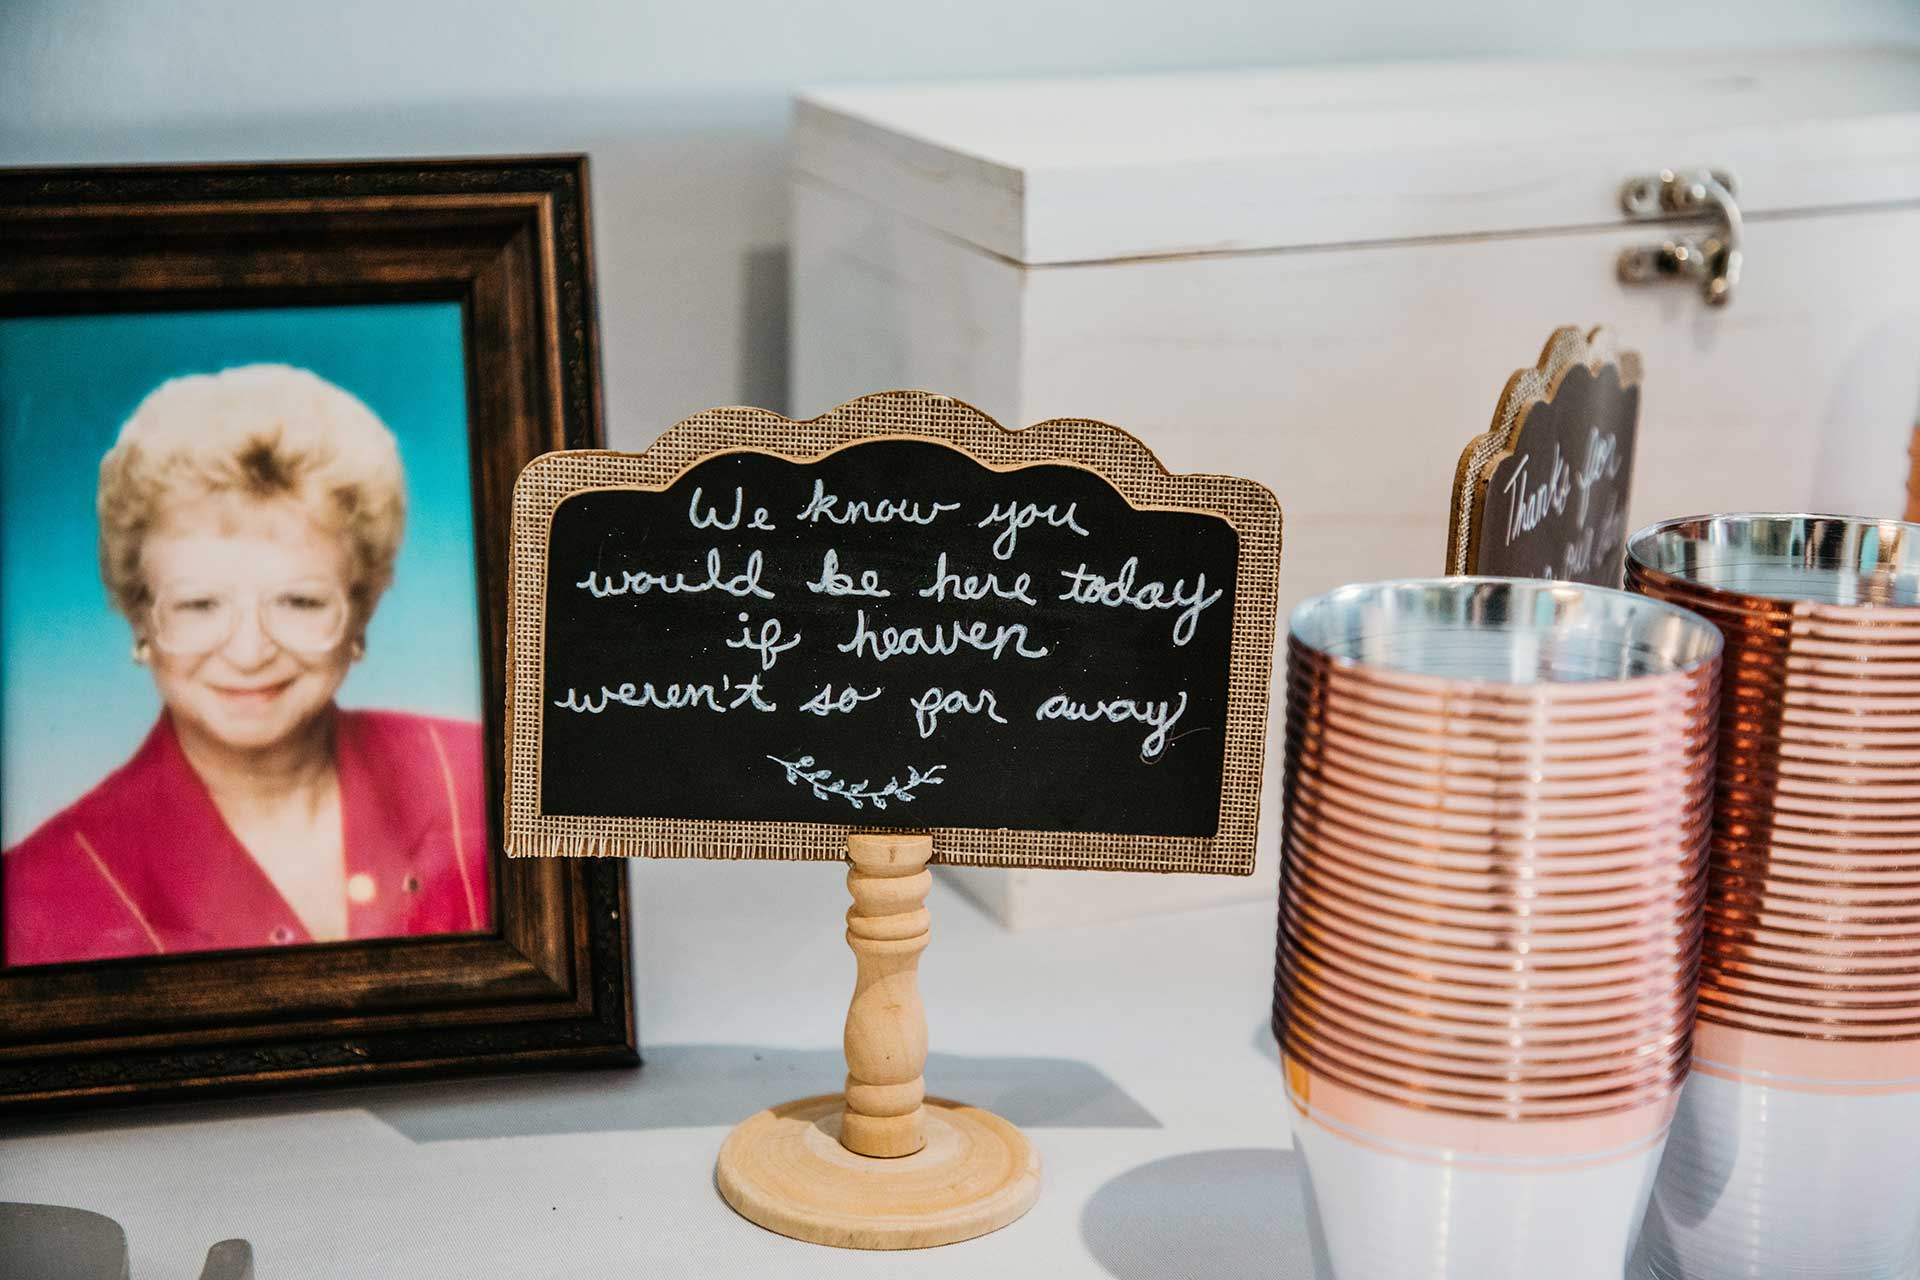 We know you
would be here today
if heaven
weren't so far away
Thanks for